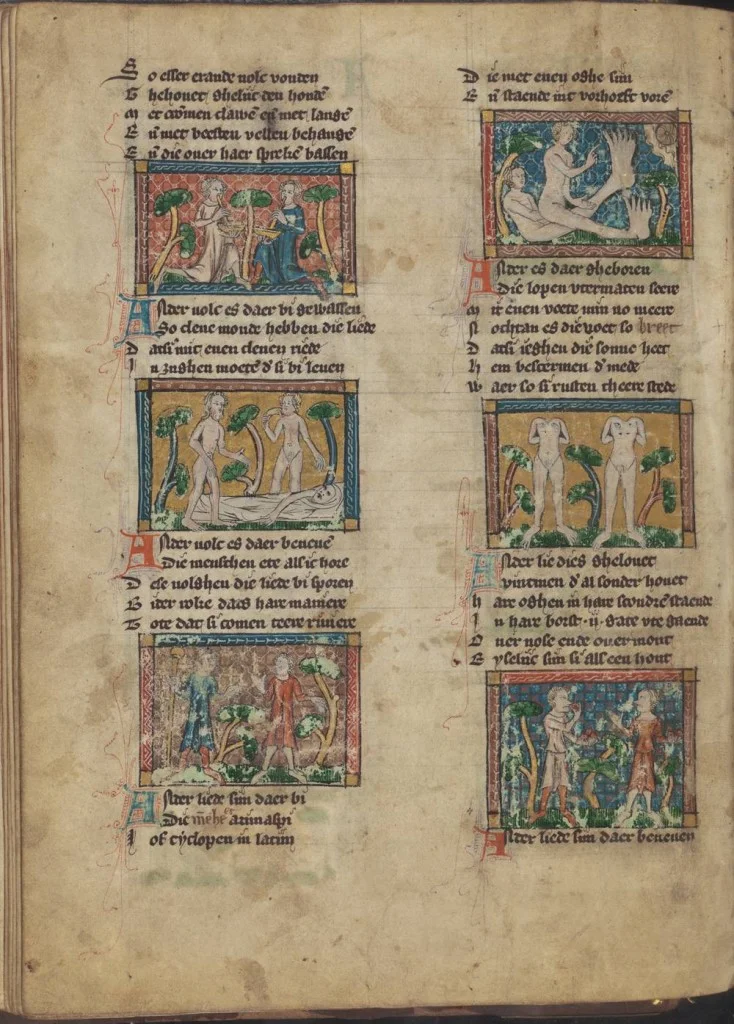 So esser erande uolc uonden
Ghehouet ghelijc den hondē
Met crōmen clawē eñ met langē
Eñ met beesten vellen behangē
Eñ die ouer haer sprekē bassen
Ander uolc es daer bi gewassen
So clene monde hebben die liede
Datsi mit enen clenen riede
In zughen moetē d' si bi leuen
Ander uolc es daer beneuē
Die menschen etē als ic hore
Dese uolghen die liede bi sporen
Biter roke dats hare maniere
Tote dat si comen teere riuiere
Ander liede sijn daer bi
Die arimaspi
Iof cyclopen in latijn
Die met enen oghe sijn
Eñ staende int vorhoeft vorē
Ander es daer gheboren
Die lopen vtermaten seere
Mit enen voete min no meere
Nochtan es die voet so breet
Datsi ieghen die sonne heet
Hem bescermen d' mede
Waer so si rusten theere stede
Ander lie dies ghelouet
Vintmen d' al sonder houet
Hare oghen in hare scoudrē staende
In hare borst .ij. gate vte gaende
Ouer nose ende ouer mont
Eyselijc sijn si als een hont
Ander liede sijn daer beneuen